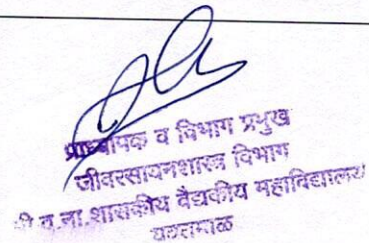 प्राध्यापक व विभाग प्रमुख
जीवरसायनशास्त्र विभाग
व.ना.शासकीय वैद्यकीय महाविद्यालय
यवतमाळ